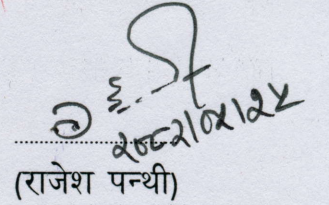 २०८२।०५।२५
(राजेश पन्थी)